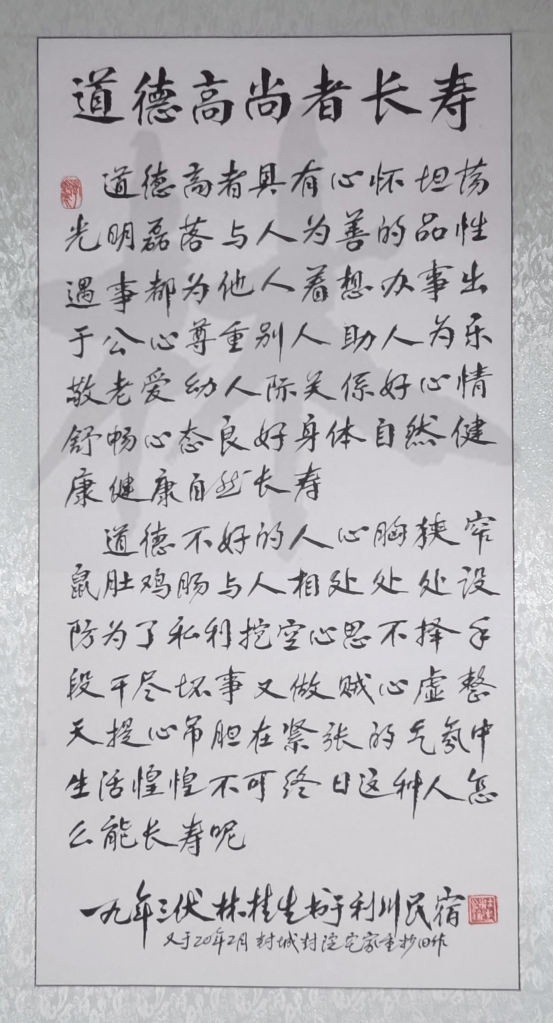 道德高尚者长寿
道德高者具有心怀坦荡
光明磊落与人为善的品性
遇事都为他人着想办事出
于公心尊重别人助人为乐
敬老爱幼人际关係好心情
舒畅心态良好身体自然健
康健康自然长寿
道德不好的人心胸狭窄
鼠肚鸡肠与人相处处处设
防为了私利挖空心思不择手
段干尽坏事又做贼心虚整
天提心吊胆在紧张的气氛中
生活惶惶不可终日这种人怎
么能长寿呢
一九年三伏林桂生书于利川民宿
又于20年2月封城封院宅家重抄旧作
林